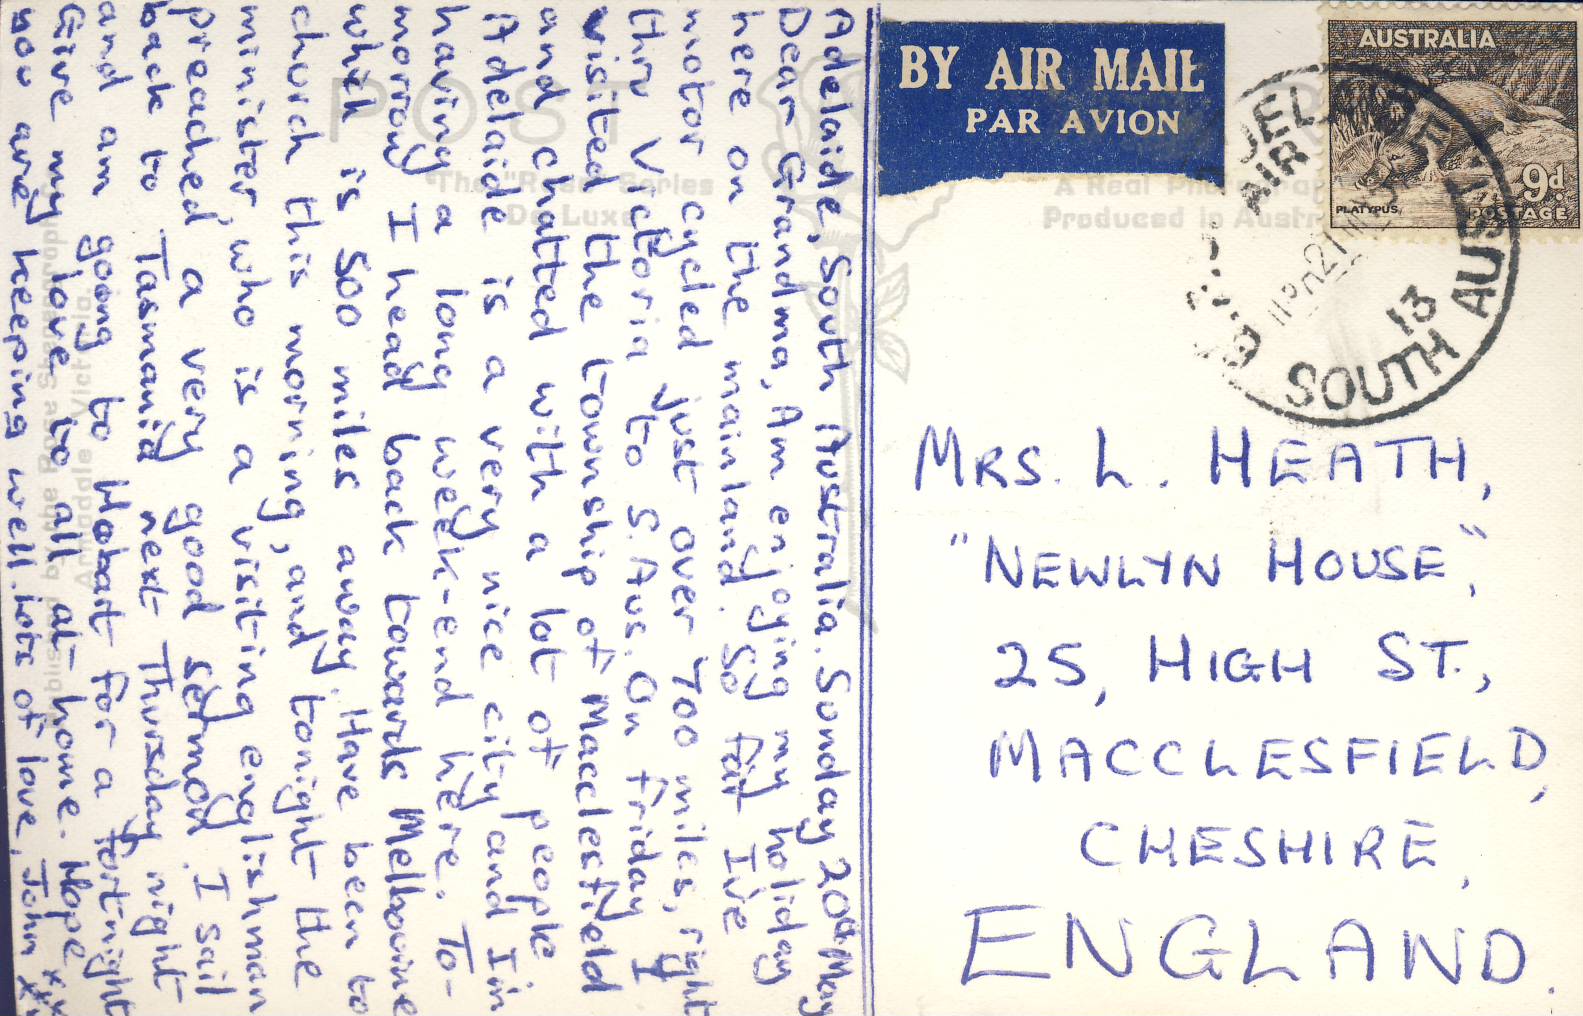 Adelaide, South Australia. Sunday 20th May
Dear Grandma, Am enjoying my holiday
here on the mainland. So far I've
motor cycled just over 700 miles, right
thru Victoria to S. Aus. On Friday I
visited the township of Macclesfield
and chatted with a lot of people
Adelaide is a very nice city and I'm
having a long week-end here. To-
morrow I head back towards Melbourne
which is 500 miles away. Have been to
church this morning, and tonight the
minister, who is a visiting englishman
preached a very good sermon. I sail
back to Tasmania next Thursday night
and am going to Hobart for a fortnight
Give my love to all at home. Hope
you are keeping well. Lots of love, John xxx
POST
The "Rose" Series
De Luxe
A Real
Produced in Austr
BY AIR MAIL
PAR AVION
AUSTRALIA
9d
PLATYPUS
POSTAGE
AIR
13
SOUTH AUST
MRS. L. HEATH,
"NEWLYN HOUSE",
25, HIGH ST.,
MACCLESFIELD,
CHESHIRE,
ENGLAND.